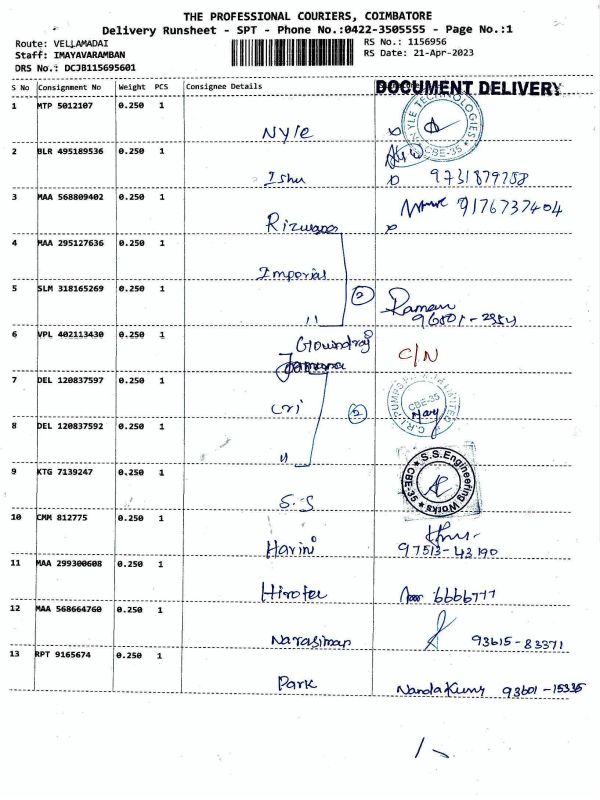 THE PROFESSIONAL COURIERS, COIMBATORE
Delivery Runsheet - SPT - Phone No.:0422-3505555 - Page No.:1
Route: VELLAMADAI
Staff: IMAYAVARAMBAN
DRS No.: DCJB115695601
RS No.: 1156956
RS Date: 21-Apr-2023
S No Consignment No Weight PCS Consignee Details
DOCUMENT DELIVERY
1 MTP 5012107 0.250 1
Nyle
NYLE TECHNOLOGIES CBE-35
2 BLR 495189536 0.250 1
Ishu 9731879758
3 MAA 568809402 0.250 1
Rizwana 9176737404
4 MAA 295127636 0.250 1
Imporial
5 SLM 318165269 0.250 1
11 2 Raman
6 VPL 402113430 0.250 1
Goundraj
Jamuna C/N
7 DEL 120837597 0.250 1
Cri 2
C.R.I. PUMPS LIMITED CBE-35
Mary
8 DEL 120837592 0.250 1
11
9 KTG 7139247 0.250 1
S.S
S.S.Engineering Works CBE-35
10 CMM 812775 0.250 1
Harini 97513-43190
11 MAA 299300608 0.250 1
Hirotec 6666777
12 MAA 568664760 0.250 1
Narasiman 93615-83371
13 RPT 9165674 0.250 1
Park NandaKumr 93601-15335
1-